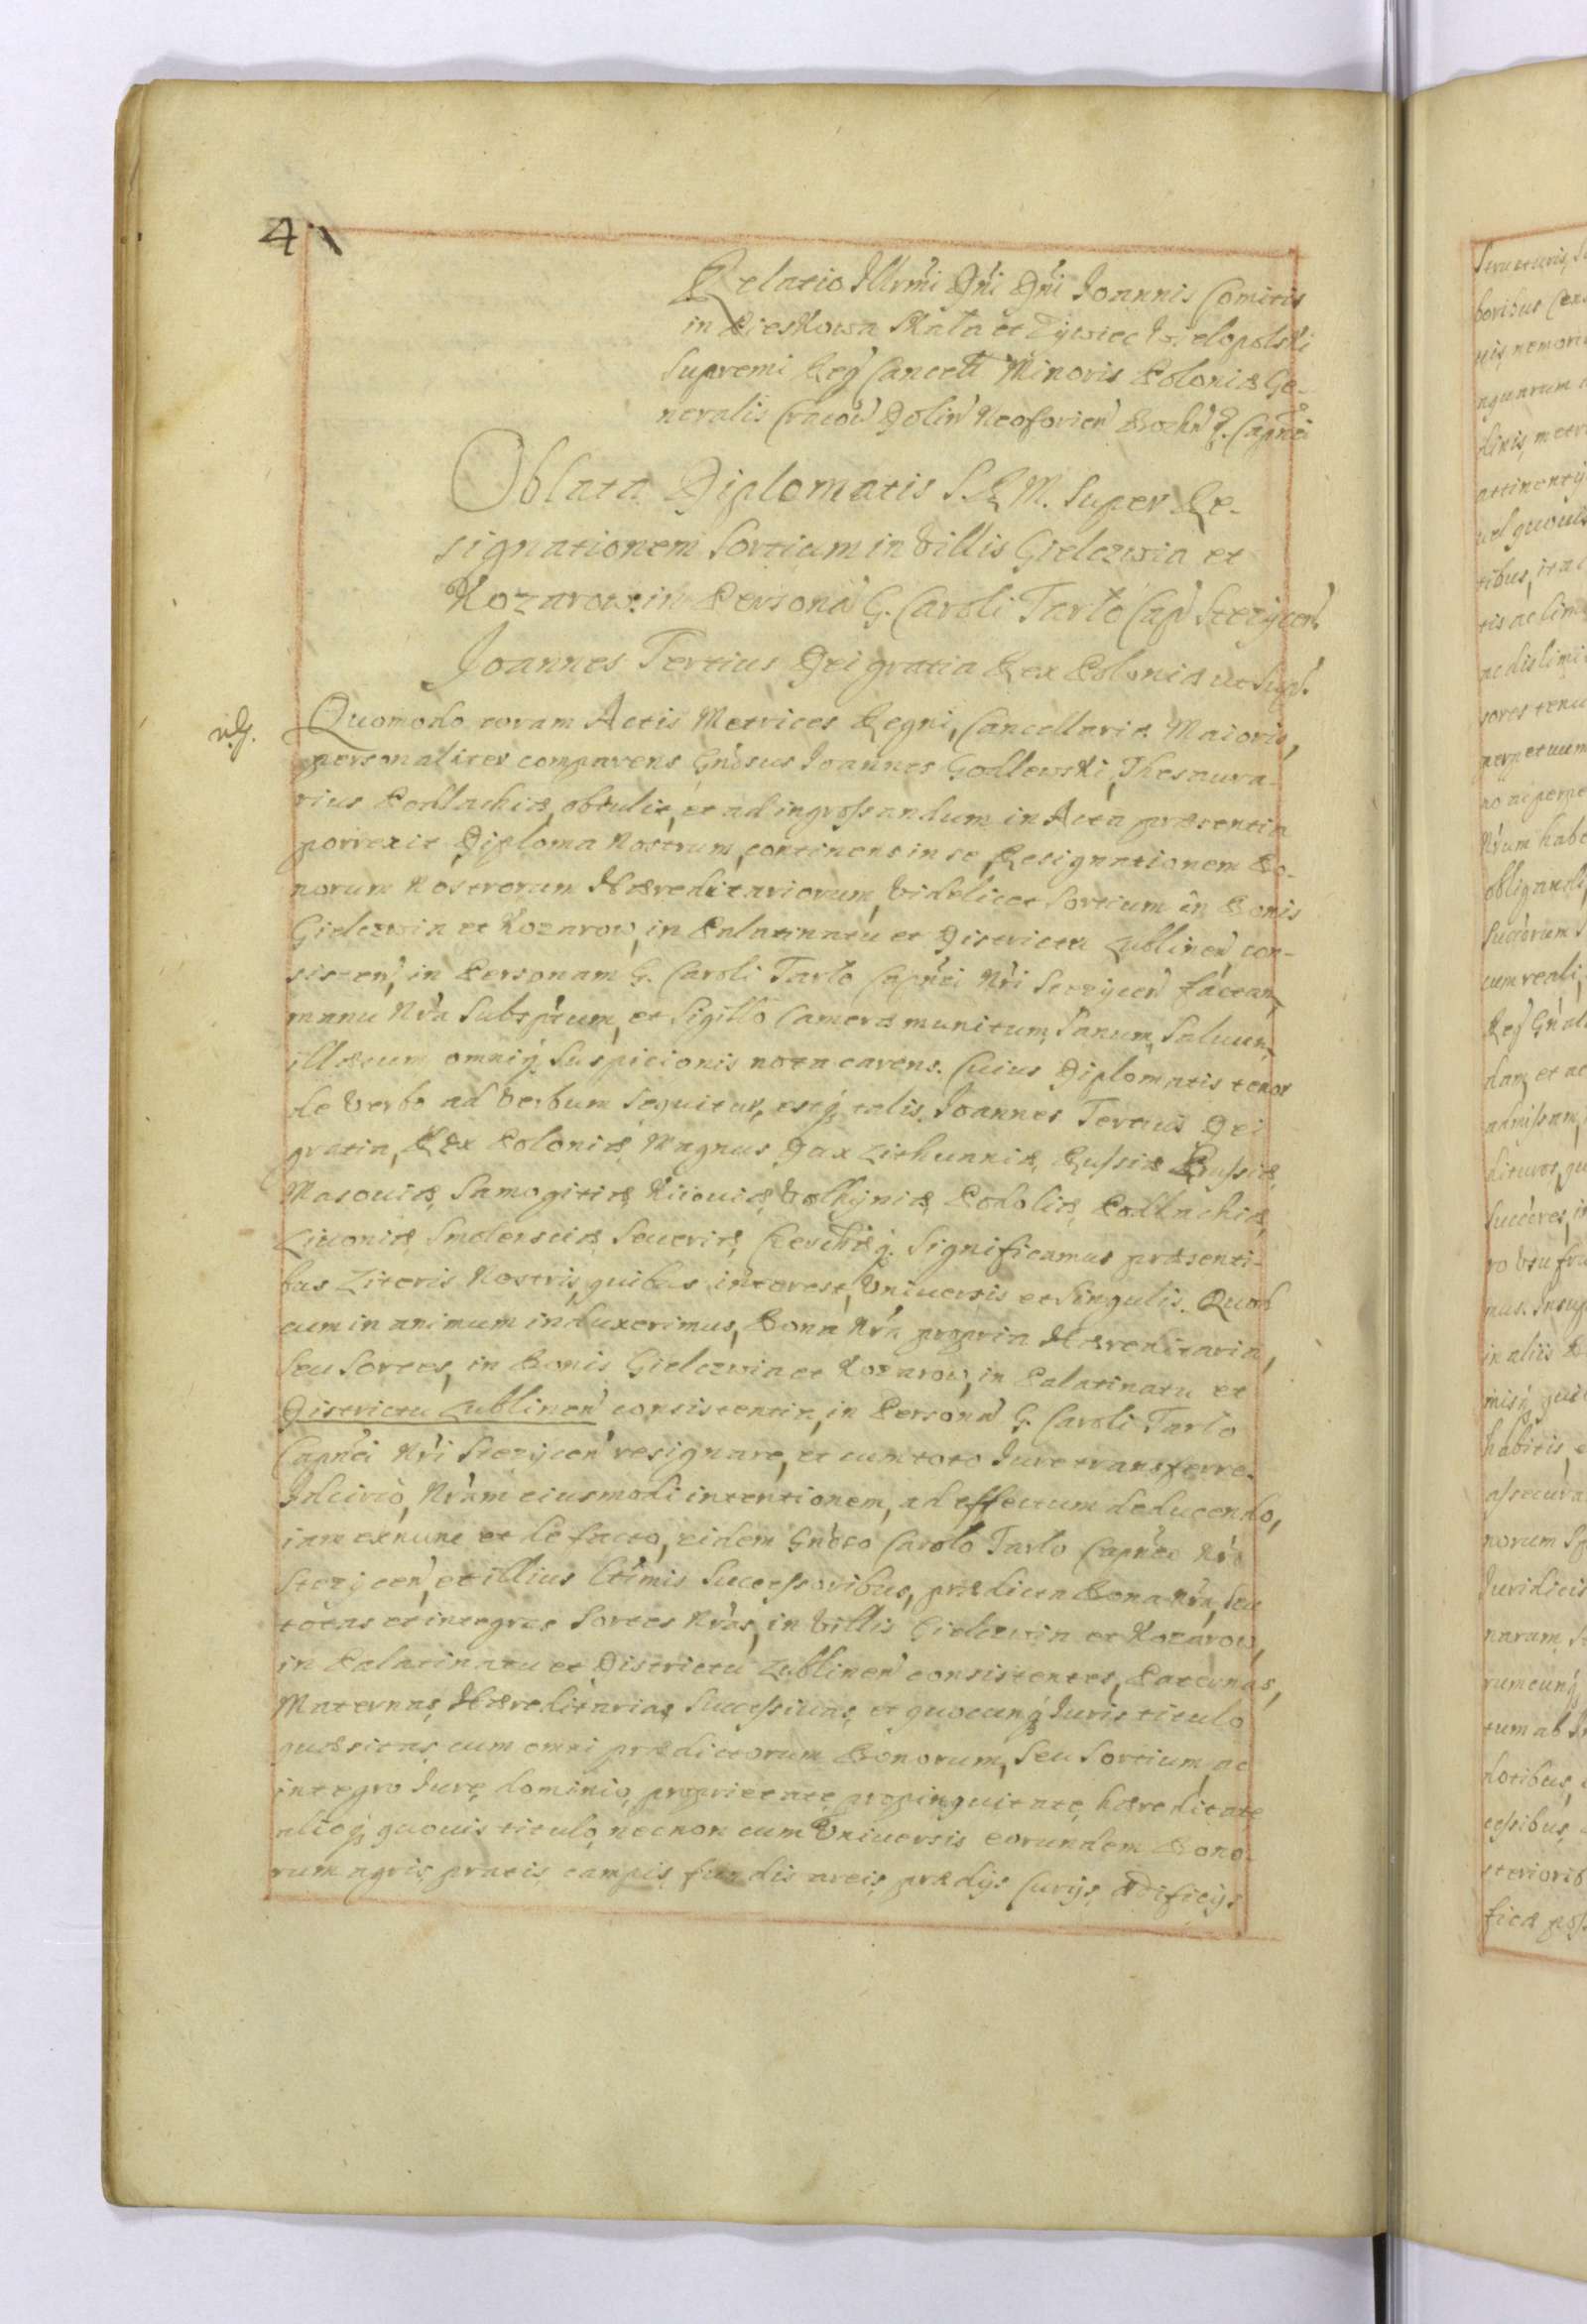 4
Relatio Illrmi Dni Dni Joannis Comitis
in Pieskowa Skała et Zywiec Wielopolski
Supremi Reg Cancell Minoris Poloniæ Ge-
neralis Cracov Dolin Neoforien Bochn q. Capnei
Oblata Diplomatis S.R.M. Super Re-
signationem Sortium in Villis Gielczwia et
Kozarow in Persona G. Caroli Tarło Cap Stezycen.
Joannes Tertius Dei gratia Rex Poloniæ ut Sup.
Quomodo coram Actis Metrices Regni, Cancellariæ Maioris,
personaliter comparens Gnosus Joannes Godlewski, Thesaura-
rius Podlachiæ, obtulit, et ad ingrossandum in Acta præsentia
porrexit Diploma Nostrum, continens in se, Resignationem Bo-
norum Nostrorum Hæreditariorum, Videlicet Sortium in Bonis
Gielczwia et Kozarow, in Palatinatu et Districtu Lublinen con-
sisten, in Personam G. Caroli Tarło Capnei Nri Stezycen factam,
manu Nra Subscptum, et Sigillo Cameræ munitum, Sanum, Saluum,
illæsum omniq. Suspicionis nota carens. Cuius Diplomatis tenor
de Verbo ad Verbum Sequitur, estq. talis. Joannes Tertius Dei
gratia, Rex Poloniæ, Magnus Dux Lithuaniæ, Russiæ Prussiæ,
Masouiæ, Samogitiæ, Kiiouiæ, Volhyniæ, Podoliæ, Podlachiæ,
Liuoniæ Smolensciæ, Seueriæ, Czerniechouiæq. Significamus præsenti-
bus Literis Nostris, quibus interest, Vniuersis et Singulis. Quod
cum in animum induxerimus, Bona Nra propria Hæreditaria,
Seu Sortes, in Bonis Gielczwia et Kozarow, in Palatinatu et
Districtu Lublinen consistentia, in Persona G. Caroli Tarło
Capnei Nri Stezycen resignare, et cum toto Iure transferre.
Idcirco, Nram eiusmodi intentionem, ad effectum deducendo,
iam exnunc et de facto, eidem Gnoso Carolo Tarło Capneo Nro
Stezycen, et illius ltimis Successoribus, prædicta Bona Nra, seu
totas et integras Sortes Nras, in Villis Gielczwia et Kozarow,
in Palatinatu et Districtu Lublinen consistentes, Paternas,
Maternas, Hæreditarias, Successiuas, et quocunq Iuris titulo
quæsitas, cum omni prædictorum Bonorum, Seu Sortium, ac
integro Iure, dominio, proprietate, propinquitate, hæreditate
alioq. quouis titulo, necnon cum Vniuersis eorundem Bono-
rum agris, pratis, campis, fundis, areis, prædijs, Curijs, ædificijs